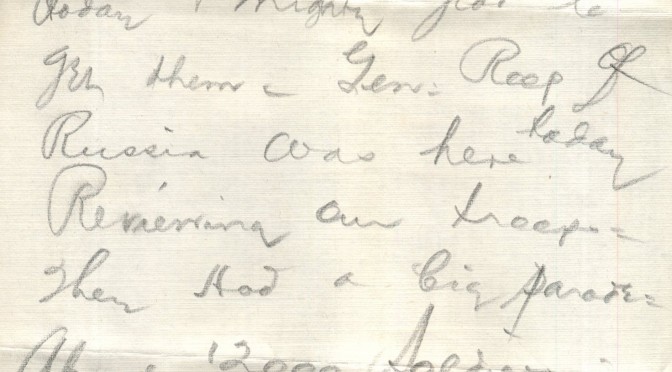 today & mighty glad to
get them - Gen. Roop of
Russia was here today
Reviewing our troops -
They Had a big parade -
12000 Soldiers